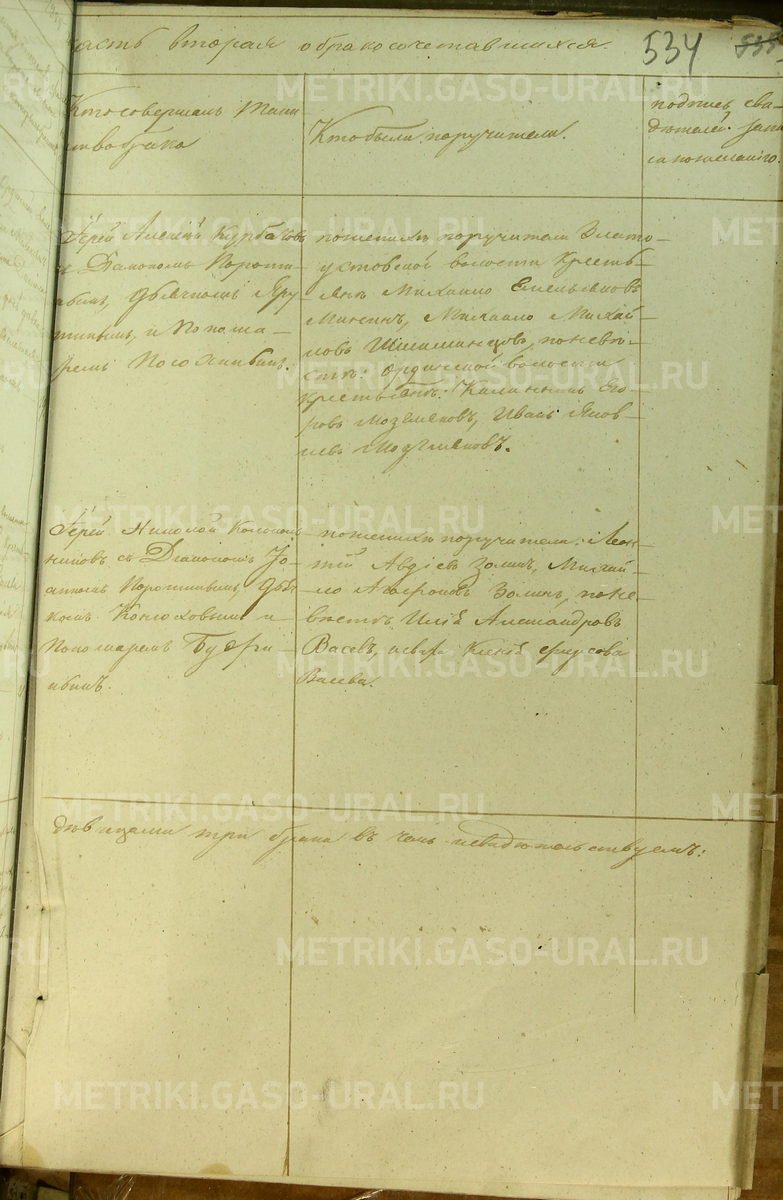 часть вторая о бракосочетавшихся. 534
Кто совершал Таин
ство брака
Кто были поручители.
подпись сви-
детелей запи
си по желанию.
Іерей Алексѣй Курбатовъ
съ Діакономъ Короти
вымъ, и Понома-
ремъ
по женихѣ поручители Злато-
устовской волости Кресть-
яне Михаило Емельяновъ
Михаило Михай
ловъ Шишминцовъ, по невѣ-
стѣ: Ординской волости
крестьяне: Калинникъ Его
ровъ Мозжаковъ, Иванъ Яков
левъ
Іерей Николай Колоколь
никовъ съ Діакономъ Іо
анномъ Коротинымъ, Дья
комъ Конюховымъ и
Пономаремъ Будри
нымъ.
по женихѣ поручители: Леон
тій Авдіевъ Золинъ, Михай
ло Агафоновъ Золинъ, по не
вѣстѣ Илій Александровъ
Васевъ,
Васева.
дѣвицами три брака въ чемъ и свидѣтельствуемъ:
METRIKI.GASO-URAL.RU